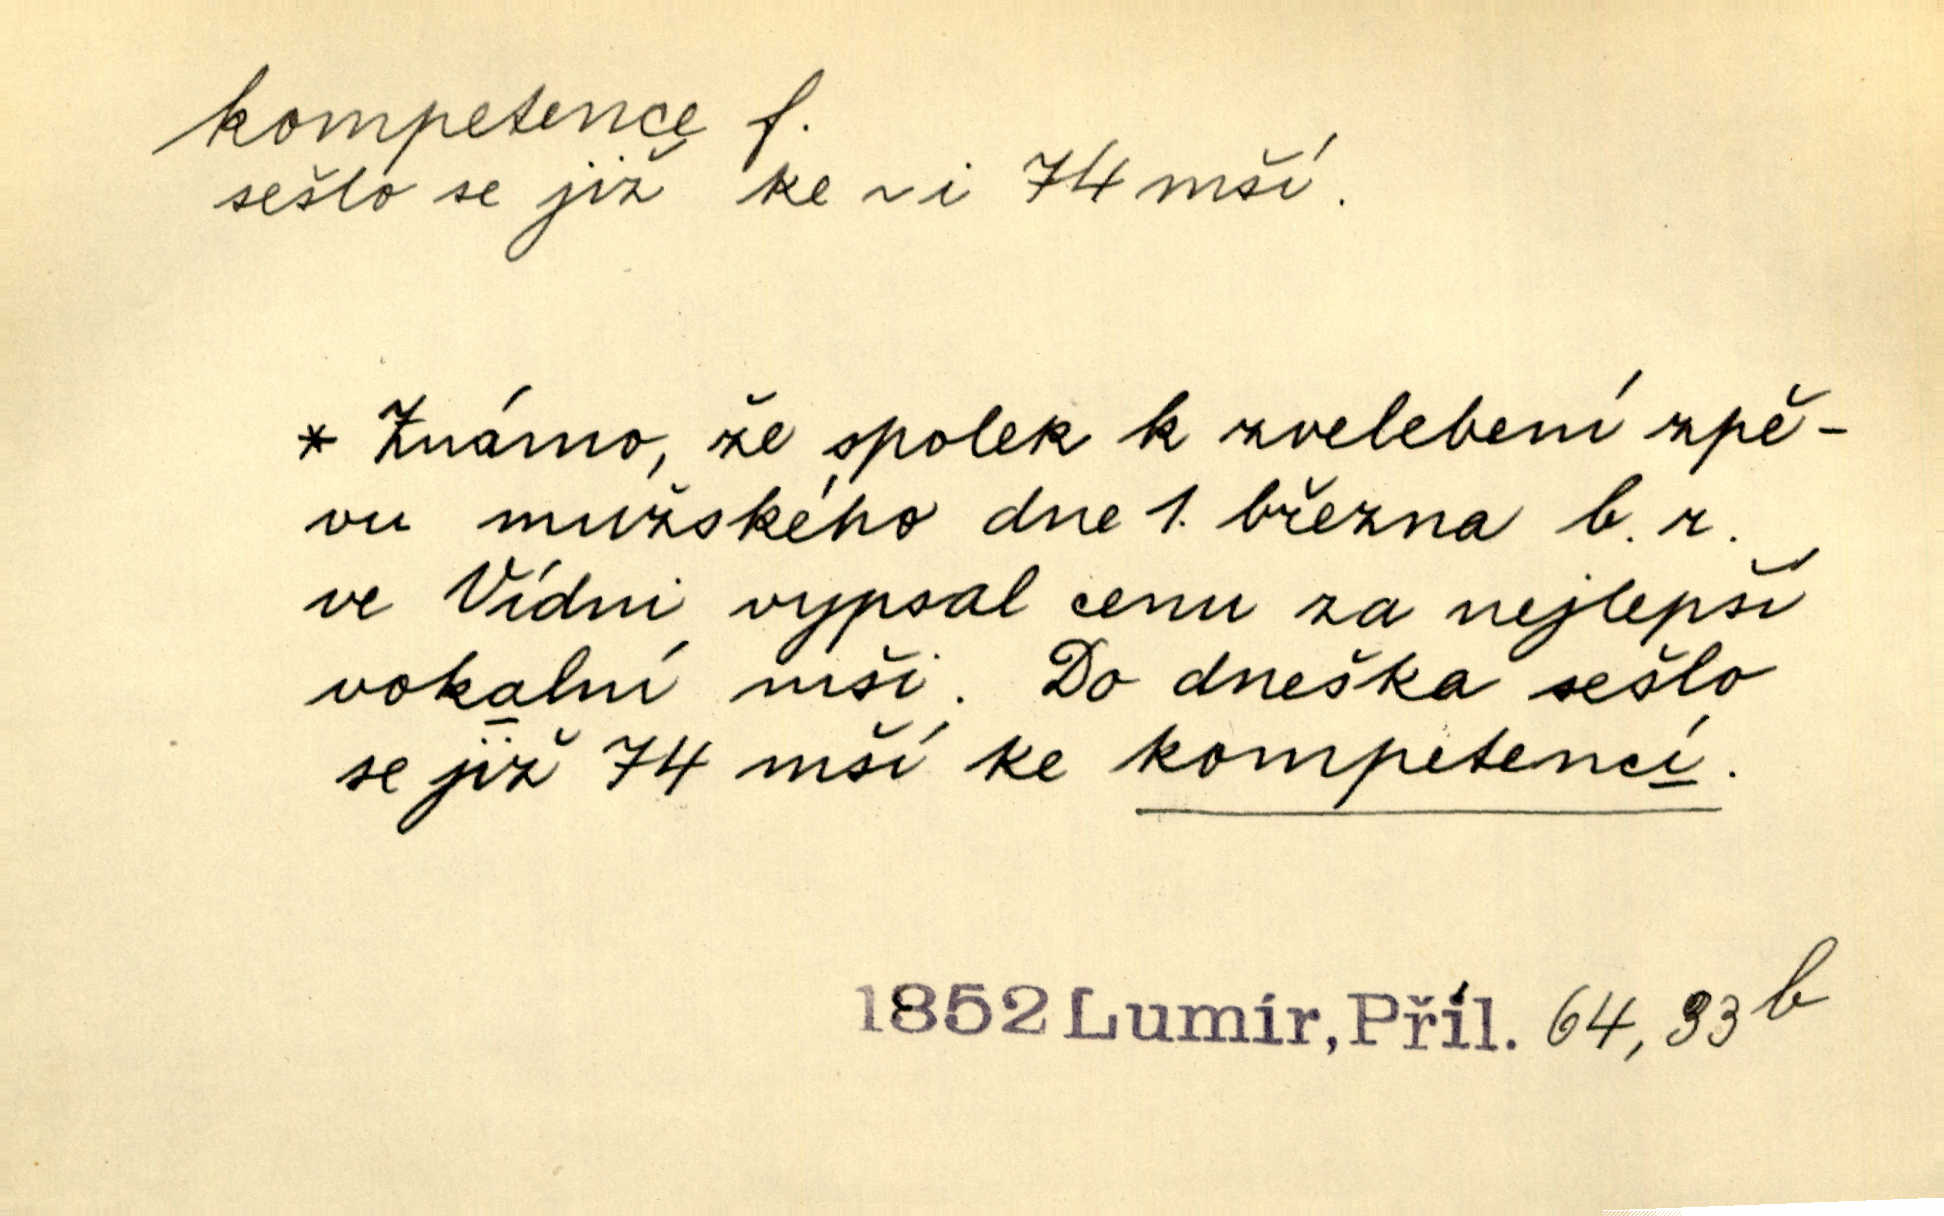 kompetence f.
sešlo se již ke ~i 74 mší.
* Známo, že spolek k zvelebení zpě-
vu mužského dne 1. března b. r.
ve Vídni vypsal cenu za nejlepší
vokalní mši. Do dneška sešlo
se již 74 mší ke kompetencí.
1852 Lumír, Příl. 64, 33 b